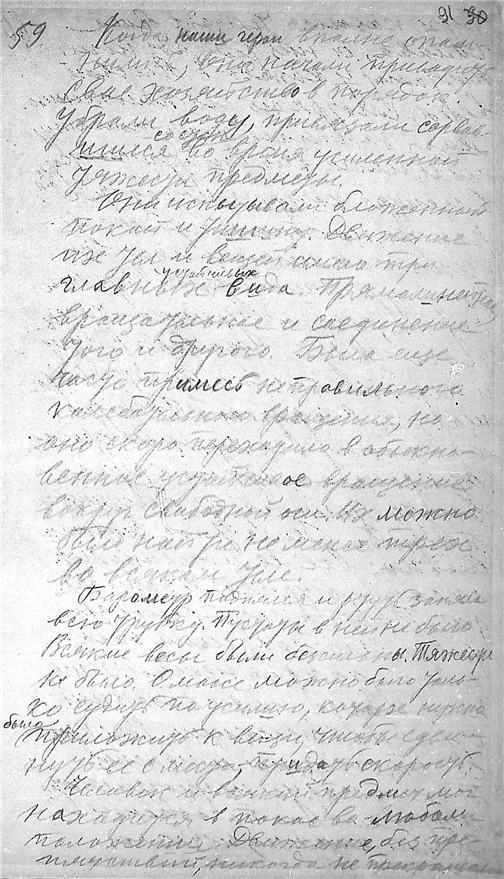 91 30
59 Когда наши герои вполне опом-
нились, они начали приводить
свое хозяйство в порядок.
Убрали воду, привязали сорвав-
шиеся во время усиленной
тяжести предметы.
Они испытывали блаженный
покой и тишину. Движение
их тел и вещей имело три
главных устойчивых вида. Прямолинейное,
вращательное и соединение
того и другого. Была еще
часто примесь неправильного
колебательного вращения, но
оно скоро переходило в обыкно-
венное устойчивое вращение
вокруг свободной оси. Их можно
было найти не менее трех
во всяком теле.
Барометр поднялся и ртуть заняла
всю трубку. Пустоты в ней не было.
Всякие весы были безсильны. Тяжести
не было. О массе можно было толь-
ко судить по усилию, которое нужно
было приложить к вещи, чтобы сдви-
нуть ее с места, придать скорость.
Человек и всякий предмет мог
находиться в покое в любом
положении. Движение, без пре-
пятствий, никогда не прекращалось